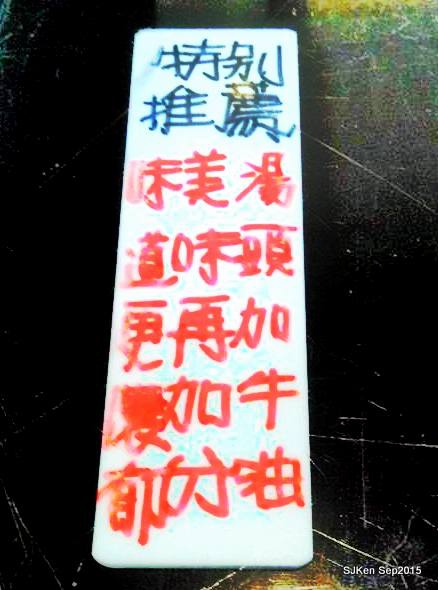 特別
推薦
湯頭加牛油
美味再加分
味道更濃郁
SJKen Sep2015